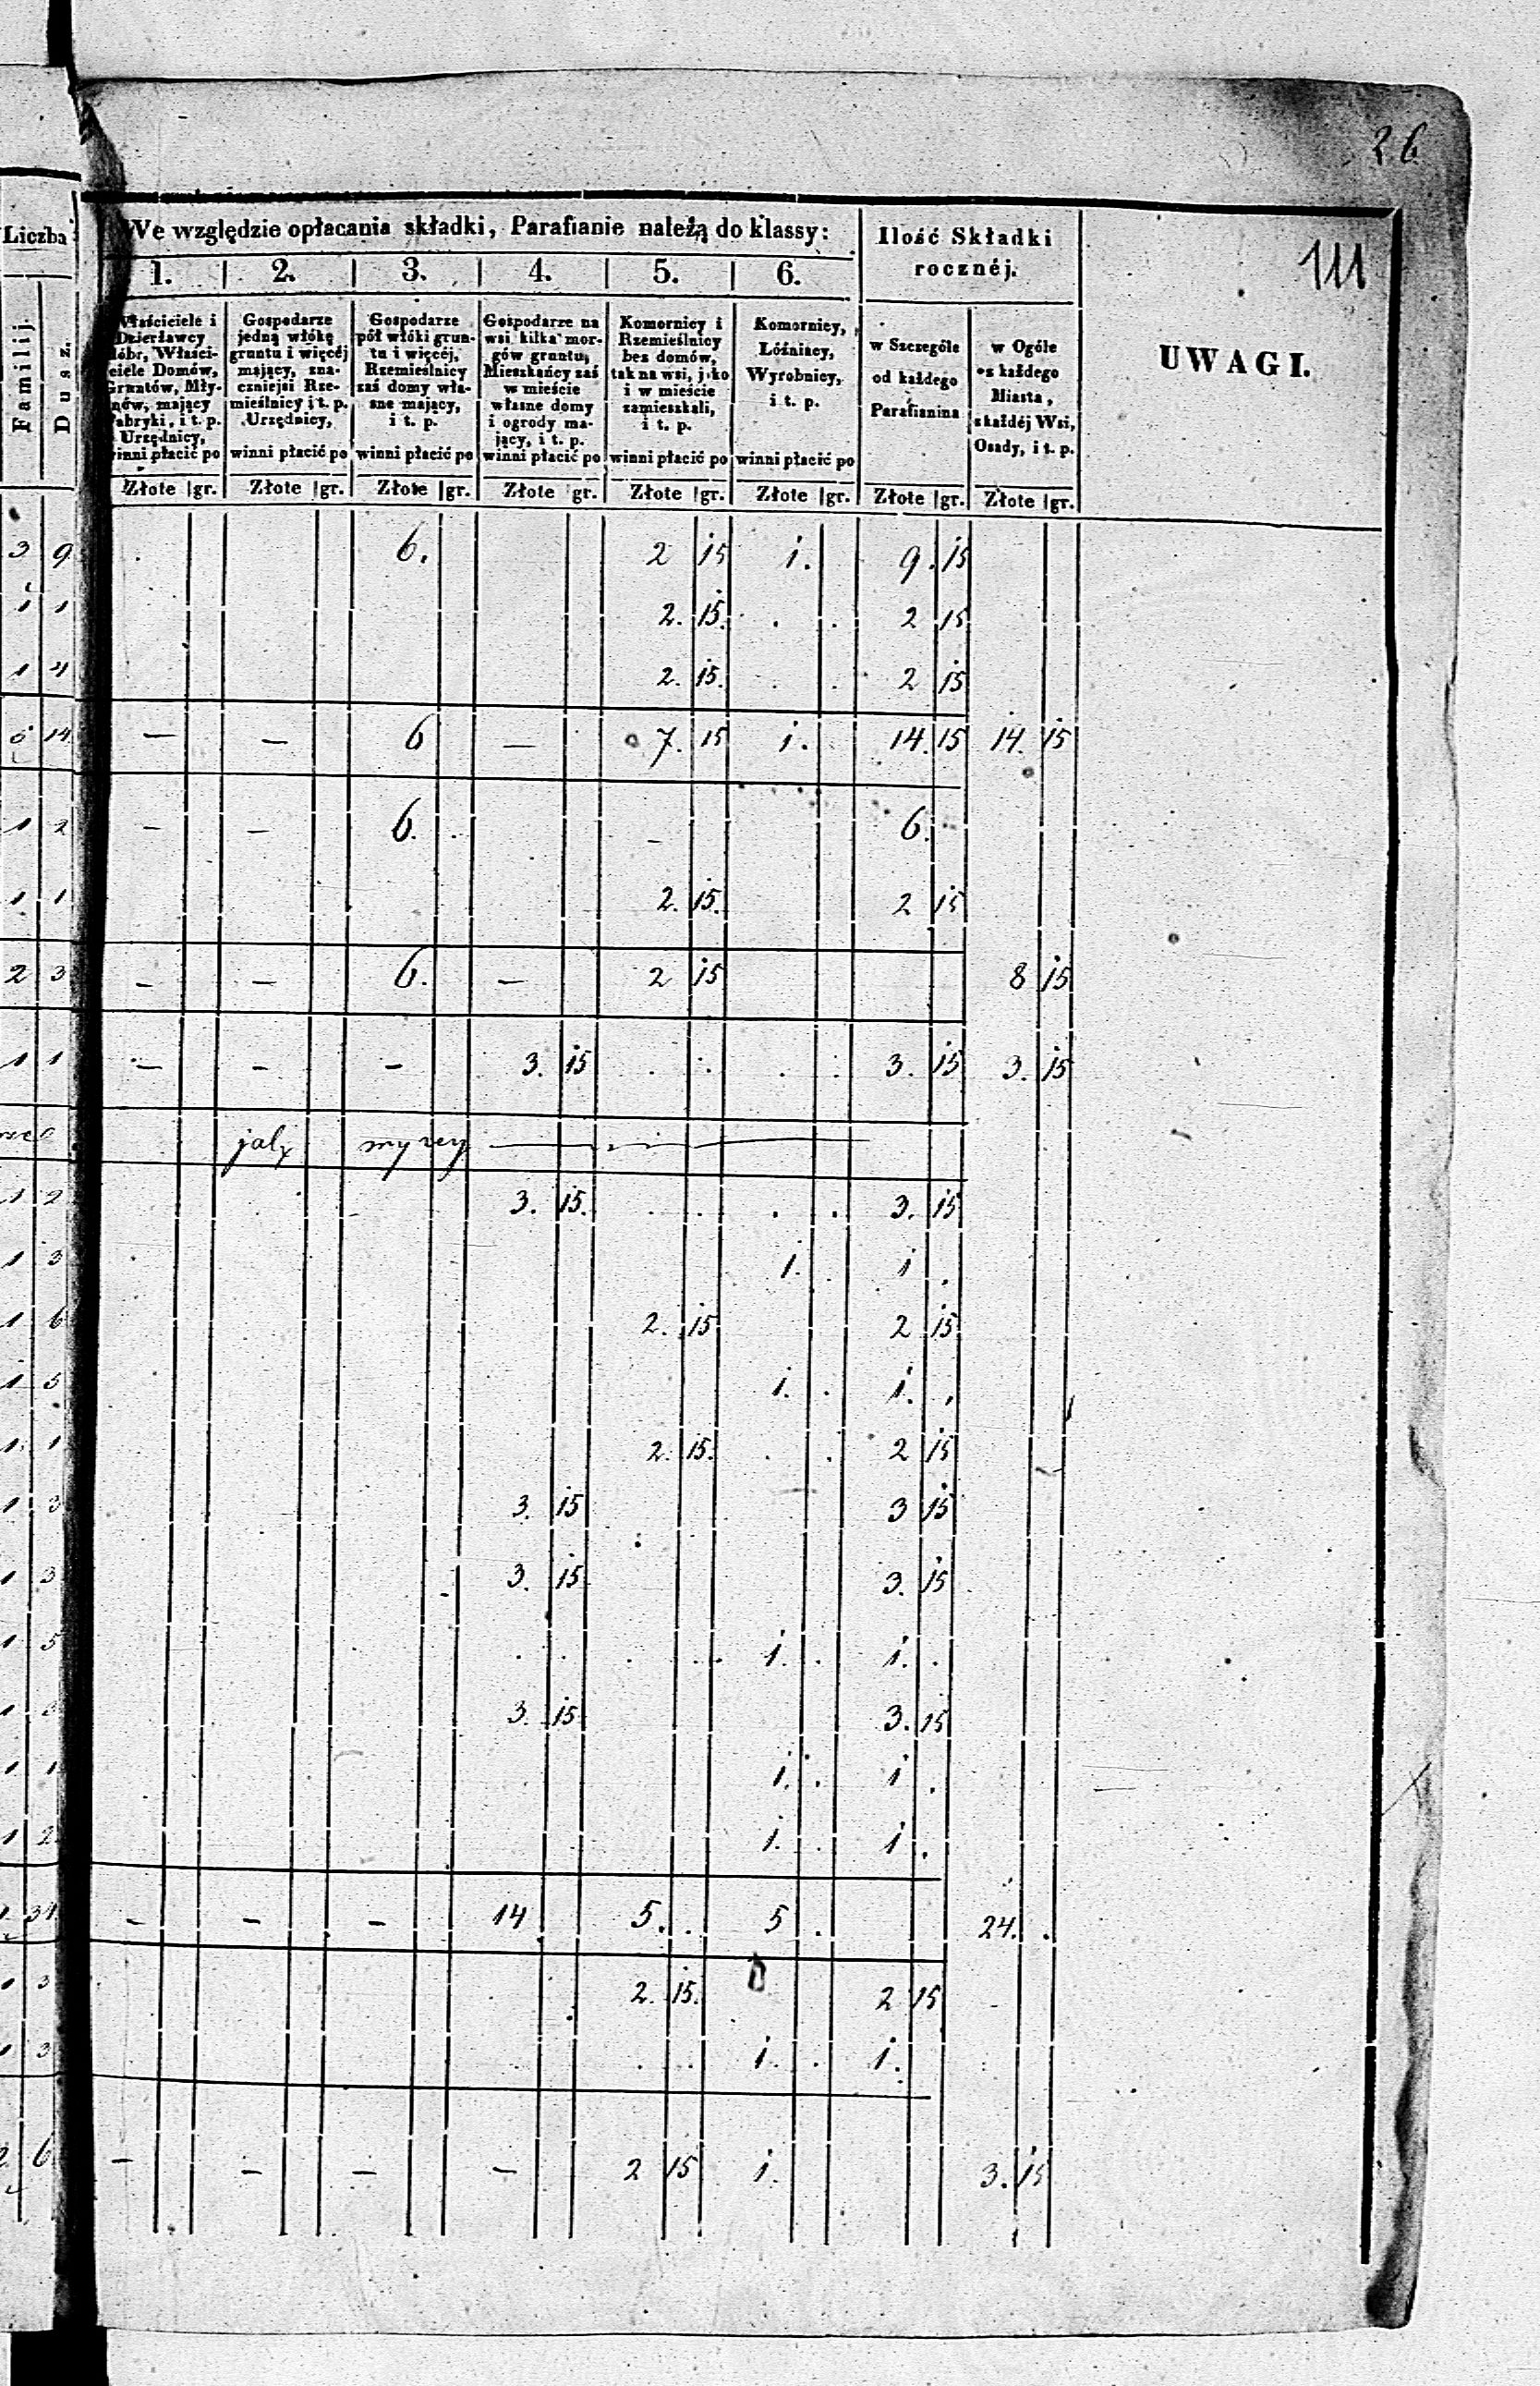 26
111
Liczba
We względzie opłacania składki, Parafianie należą do klassy:
Ilość Składki rocznéj.
UWAGI.
1. 2. 3. 4. 5. 6.
Familij. Dusz.
Właściciele i
Dzierżawcy
dóbr, Właści-
ciele Domów,
Gruntów, Mły-
nów, mający
Fabryki, i t. p.
Urzędnicy,
winni płacić po
Gospodarze
jedną włókę
gruntu i więcéj
mający, zna-
czniejsi Rze-
mieślnicy i t. p.
Urzędnicy,
winni płacić po
Gospodarze
pół włóki grun-
tu i więcéj,
Rzemieślnicy
zaś domy wła-
sne mający,
i t. p.
winni płacić po
Gospodarze na
wsi kilka mor-
gów gruntu,
Mieszkańcy zaś
w mieście
własne domy
i ogrody ma-
jący, i t. p.
winni płacić po
Komornicy i
Rzemieślnicy
bez domów,
tak na wsi, jako
i w mieście
zamieszkali,
i t. p.
winni płacić po
Komornicy,
Lóźniacy,
Wyrobnicy,
i t. p.
winni płacić po
w Szczególe
od każdego
Parafianina
w Ogóle
z każdego
Miasta,
z każdéj Wsi,
Osady, i t. p.
Złote gr. Złote gr. Złote gr. Złote gr. Złote gr. Złote gr. Złote gr. Złote gr.
3 9 6. 2 15 1. 9. 15
1 1 2. 15. 2 15
1 4 2. 15. 2 15
14 — — 6 — 7. 15 1. 14. 15 14. 15
1 2 — — 6. — 6.
1 1 2. 15. 2 15
2 3 — — 6. — 2 15 8 15
1 1 — — — 3. 15 3. 15 3. 15
1 2 3. 15. 3. 15
1 3 1. 1
1 6 2. 15 2 15
1 5 1. 1.
1 1 2. 15. 2 15
1 3 3. 15 3 15
1 3 3. 15 3. 15
1 5 1. 1.
1 3 3. 15 3. 15
1 1 1. 1
1 2 1. 1
31 — — — 14 5. 5 24.
1 3 2. 15. 2 15
1 3 1. 1.
2 6 — — — — 2 15 1. 3. 15